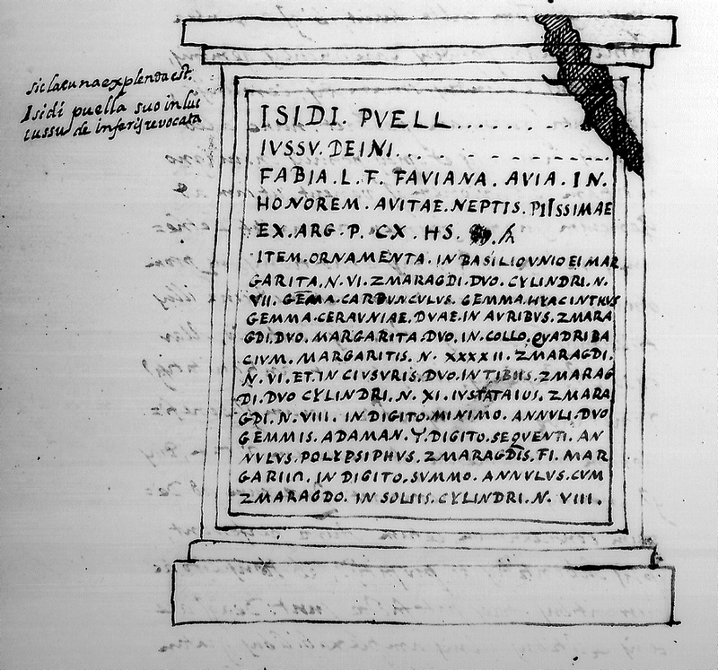 sic lacuna explenda est.
Isidi puella suo in lui
iussu de inferis revocata
ISIDI. PVELL..........
IVSSV. DEINI...........
FABIA. L. F. FAVIANA. AVIA. IN.
HONOREM. AVITAE. NEPTIS. PIISSIMAE
EX. ARG. P. CX. HS.
ITEM. ORNAMENTA. IN BASILIQVNIO EI MAR
GARITA. N. VI. ZMARAGDI. DVO. CYLINDRI. N.
VII. GEMA. CARBVNCVLVS. GEMMA. HYACINTHVS
GEMMA. CERAVNIAE. DVAE. IN AVRIBVS. ZMARA
GDI. DVO. MARGARITA. DVO. IN. COLLO. QVADRIBA
CIVM. MARGARITIS. N. XXXXII. ZMARAGDI.
N. VI. ET. IN CIVSVRIS. DVO. IN TIBIIS. ZMARAG
DI. DVO CYLINDRI. N. XI. IVSTATAIVS. ZMARA
GDI. N. VIII. IN DIGITO. MINIMO. ANNVLI. DVO
GEMMIS. ADAMAN. Y. DIGITO. SEQVENTI. AN
NVLVS. POLYPSIPHVS. ZMARAGDIS. FI. MAR
GARIIΠ. IN DIGITO. SVMMO. ANNVLVS. CVM
ZMARAGDO. IN SOLIIS. CYLINDRI. N. VIII.